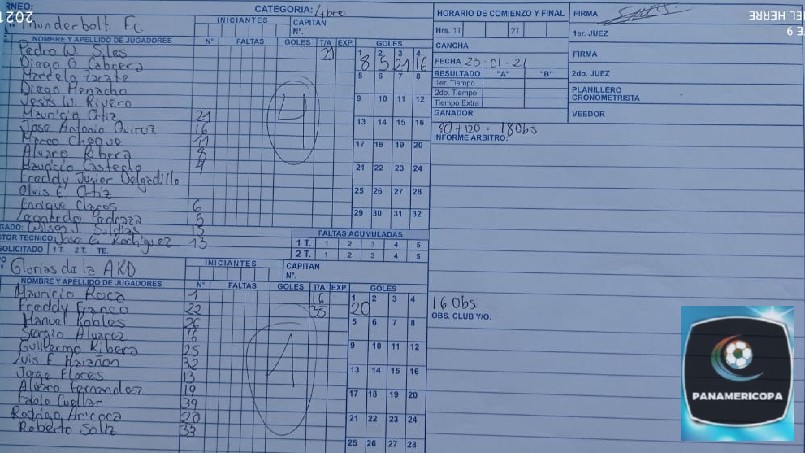 RNEO: CATEGORIA: Libre
Thunderbolt FC INICIANTES CAPITAN Nº.
NOMBRE Y APELLIDO DE JUGADORES Nº FALTAS GOLES T/A EXP GOLES
Pedro W. Siles 21 1 2 3 4
Diego O Cabrera 8 5 21 16
Marcelo Zarate 5 6 7 8
Diego Menacho
Jesus W. Rivero 9 10 11 12
Mauricio Ortiz 21
Jose Antonio Quiroz 16 13 14 15 16
Marco Choque 11
Alvaro Ribera 8 17 18 19 20
Mauricio Castedo 4
Freddy Junior Delgadillo 21 22 23 24
Olvis E. Ortiz 25 26 27 28
Enrique Claros 6
Leonardo Pedraza 5 29 30 31 32
4
GADO: Wilson J. Saldias 15 FALTAS ACUVULADAS
TOR TECNICO: Jose G. Rodriguez 13 1 T. 1 2 3 4 5
SOLICITADO 1T. 2T. TE. 2 T. 1 2 3 4 5
Glorias de la AKD INICIANTES CAPITAN Nº.
NOMBRE Y APELLIDO DE JUGADORES Nº FALTAS GOLES T/A EXP GOLES
Mauricio Roca 1 6 1 2 3 4
Freddy Franco 22 33 20
Manuel Robles 26 5 6 7 8
Sergio Alvarez
Guillermo Ribera 25 9 10 11 12
Luis F. 32
Jorge Flores 13 13 14 15 16
Alvaro Fernandez 19 17 18 19 20
Pablo Cuellar 39
Rodrigo 20 21 22 23 24
Roberto Saliz 33 25 26 27 28
1
HORARIO DE COMIENZO Y FINAL
Hrs. 1T 2T
CANCHA
FECHA 25-01-21
RESULTADO "A" "B"
1er. Tiempo
2do. Tiempo
Tiempo Extra
GANADOR
80 + 120 - 180bs
INFORME ARBITRO:
160bs
OBS. CLUB Y/O.
FIRMA
1er. JUEZ
FIRMA
2do. JUEZ
PLANILLERO
CRONOMETRISTA
VEEDOR
PANAMERICOPA